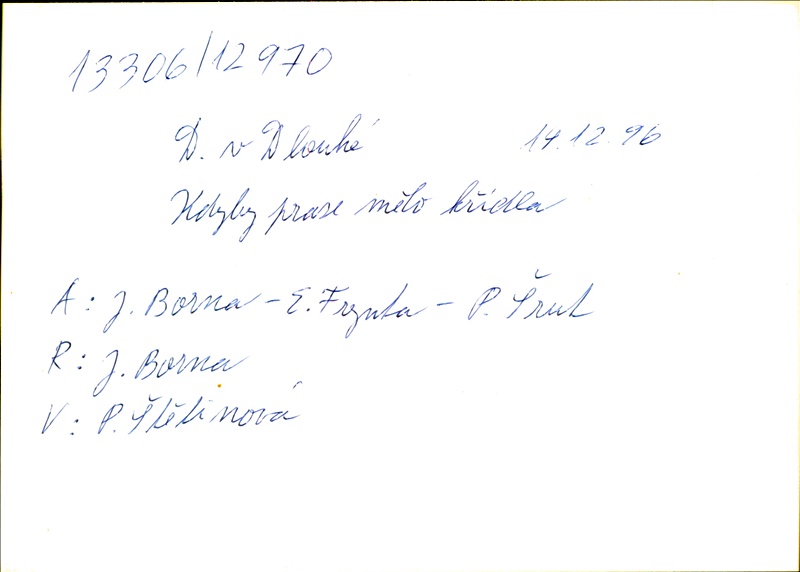 13306/12970
D. v Dlouhé 14.12.96
Kdyby prase mělo křídla
A: J. Borna - E. Frynta - P. Šrut
R: J. Borna
V: P. Štětinová